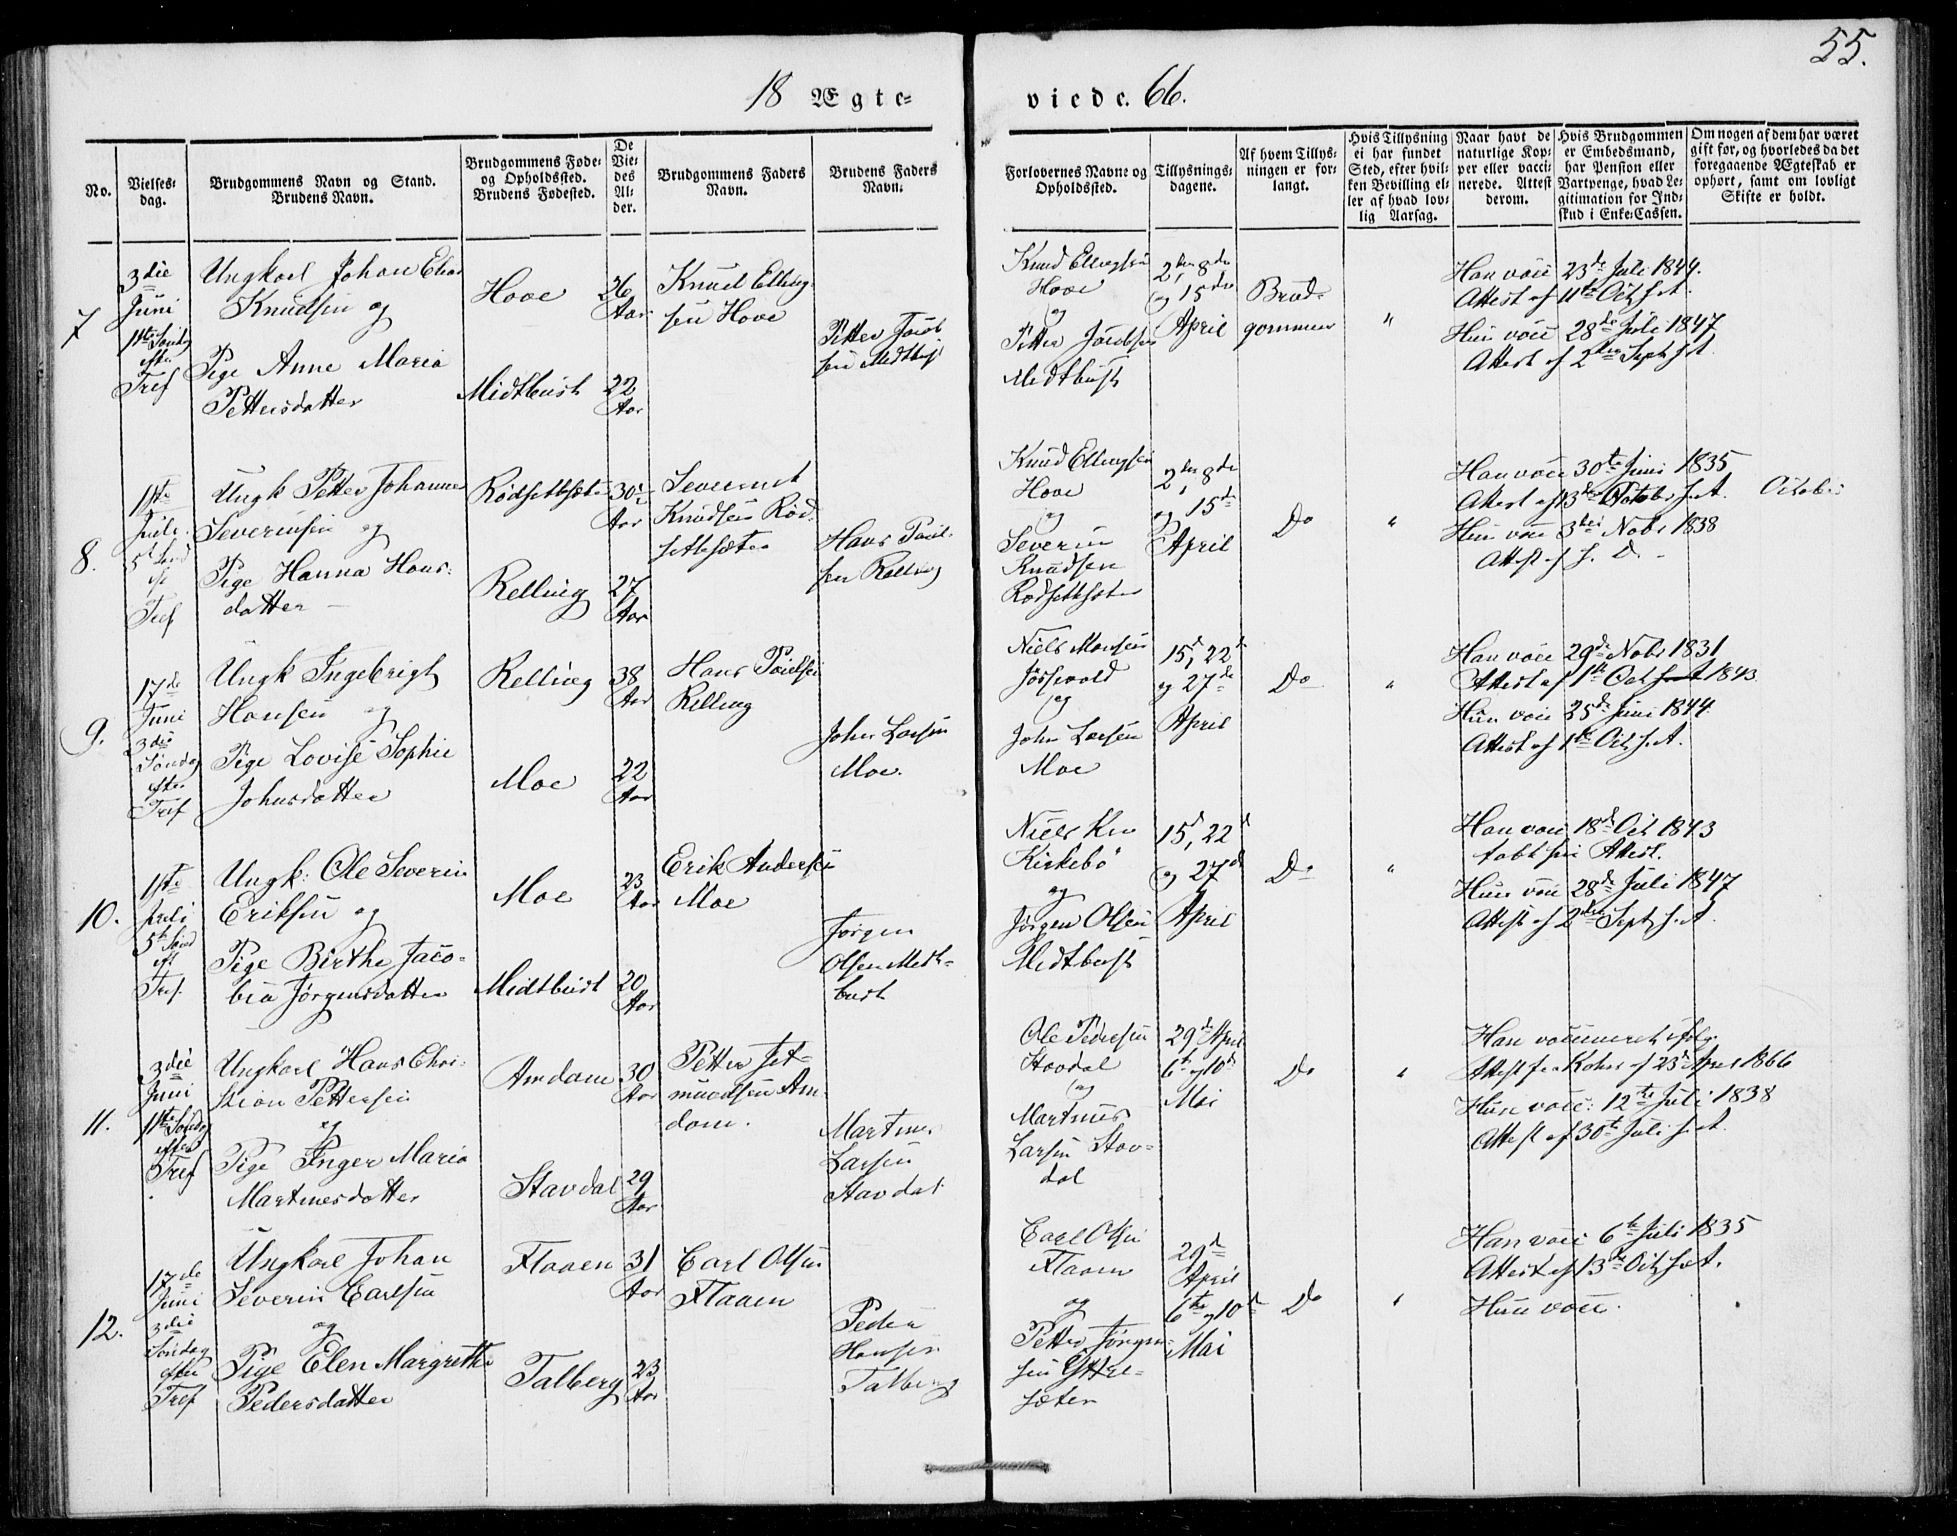 55.
18 Ægte=
viede. 66.
No.
Vielses=
dag.
Brudgommens Navn og Stand.
Brudens Navn.
Brudgommens Føde=
og Opholdssted.
Brudens Fødested.
De
Vie=
des
Al=
der.
Brudgommens Faders
Navn.
Brudens Faders
Navn.
Forlovernes Navne og
Opholdssted.
Tillysnings=
dagene.
Af hvem Tillys=
ningen er for=
langt.
Hvis Tillysning
ei har fundet
Sted, efter hvil=
ken Bevilling el=
ler af hvad lov=
lig Aarsag.
Naar havt de
naturlige Kop=
per eller vacci=
nerede. Attest
derom.
Hvis Brudgommen
er Embedsmand,
har Pension eller
Vartpenge, hvad Le=
gitimation for Ind=
skud i Enke=Cassen.
Om nogen af dem har været
gift før, og hvorledes da det
foregaaende Ægteskab er
ophørt, samt om lovligt
Skifte er holdt.
7
3die
Juni
1ste Sønd
efter
Tref
Ungkarl Johan
Knudsen og
Pige Anne Maria
Pettersdatter
Hove
Midtbust
26
Aar
22
Aar
Knud Elling
sen Hove
Petter Jacob
sen Midtbust
Knud Ellingsen
Hove
og
Petter Jacobsen
Midtbust
2den, 8de
og 15de
April
Brud=
gommen
"
Han vacc 23de Juli 1844.
Attest af 11te Oct s. A.
Hun vacc 28de Juli 1847
Attest af 2den Sept s. A.
8.
1ste
Juli
5te Sønd
ef
Tref
Ungk Petter Johannes
Severinsen og
Pige Hanna Hans=
datter
Rødsetsæter
Relling
30½
Aar
27
Aar
Severin
Knudsen Rød=
setsæter
Hans Paul=
sen Relling
Knud Ellingsen
Hove
og
Severin
Knudsen
Rødsetsæter
2den, 8de
og 15de
April
Do
"
Han vacc 30te Juni 1835
Attest af 13de October s. A. October
Hun vacc 3die Novbr 1838
Attest af s. D.
9.
17de
Juni
3die
Søndag
efter
Tref
Ungk Ingebrigt
Hansen og
Pige Lovise Sophie
Johnsdatter
Relling
Moe
38
Aar
22
Aar
Hans Paulsen
Relling
John Larsen
Moe.
Niels Monsen
og
John Larsen
Moe
15d, 22d
og 27de
April
Do
"
Han vacc 29de Novbr 1831
Attest af 1ste Oct 1843
Hun vacc 25de Juni 1844
Attest af 1ste Oct s. A.
10.
1ste
Juli
5te Sønd
ef
Tref.
Ungk. Ole Severin
Eriksen og
Pige Birthe Jaco=
bia Jørgensdatter
Moe
Midtbust
23
Aar
20
Aar
Erik Andersen
Moe
Jørgen
Olsen Midt=
bust
Niels
Kirkebø
og
Jørgen Olsen
Midtbust
15d, 22d
og 27de
April
Do
"
Han vacc 18de Oct 1843
tabt sin Attest.
Hun vacc 28de Juli 1847
Attest af 2den Sept s. A.
11.
3die
Juni
1ste Søndag
efter
Tref
Ungkarl Hans Chri=
stian Pettersen
og
Pige Inger Maria
Martinusdatter
Amdam
Stavdal
30
Aar
29
Aar
Petter Jet=
mundsen Am=
dam.
Martinus
Larsen
Stavdal
Ole Pedersen
Stavdal
og
Martinus
Larsen Stav=
dal
29de April
6te og 10de
Mai
Do
"
Han vaccineret ifølg
Attest fra af 23de April 1866
Hun vacc: 12te Juli 1838
Attest af 30te Juli s. A.
12.
17de
Juni
3die
Søndag
efter
Tref
Ungkarl Johan
Severin Carlsen
og
Pige Elen Margrethe
Pedersdatter
Flaaen
Talberg
31
Aar
23
Aar
Carl Olsen
Flaaen
Peder
Hansen
Talberg
Carl Olsen
Flaaen
og
Petter Jørgen=
sen Yttre=
sæter
29de
April
6te og 10de
Mai
Do
"
Han vacc 6te Juli 1835
Attest af 13de Oct s. A.
Hun vacc.